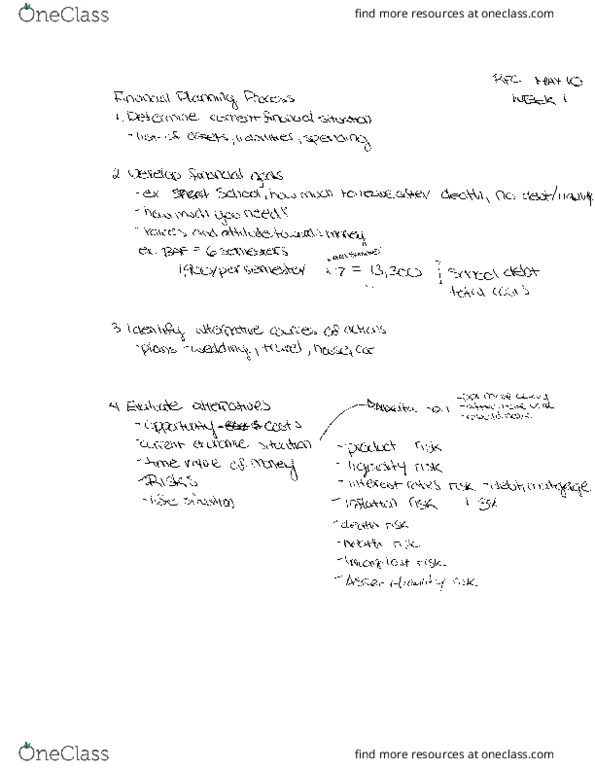 OneClass
find more resources at oneclass.com
MAY 10
WEEK 1
Financial Planning Process
1. Determine current financial situation
- list of assets, liabilities, spending
2 Develop financial goals
- ex School, how much to leave after death, no debt/
- how much you need?
- values and attitude towards money
ex. BAF = 6 semesters
1900/per semester 7 = 13,300 school debt
total costs
3 Identify alternative courses of actions
- plans - wedding, travel, house, car
4 Evaluate alternatives
- opportunity costs
- current economic situation
- time value of money
- RISKS
- life situation
- product risk
- liquidity risk
- interest rates risk - debt, mortgage
- inflation risk
- death risk
- health risk
- lost risk
- Asset liability risk
OneClass
find more resources at oneclass.com